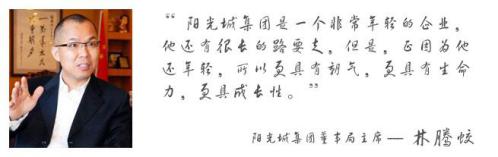 “阳光城集团是一个非常年轻的企业,
他还有很长的路要走,但是,正因为他
还年轻,所以更具有朝气,更具有生命
力,更具成长性。”
阳光城集团董事局主席 — 林腾蛟